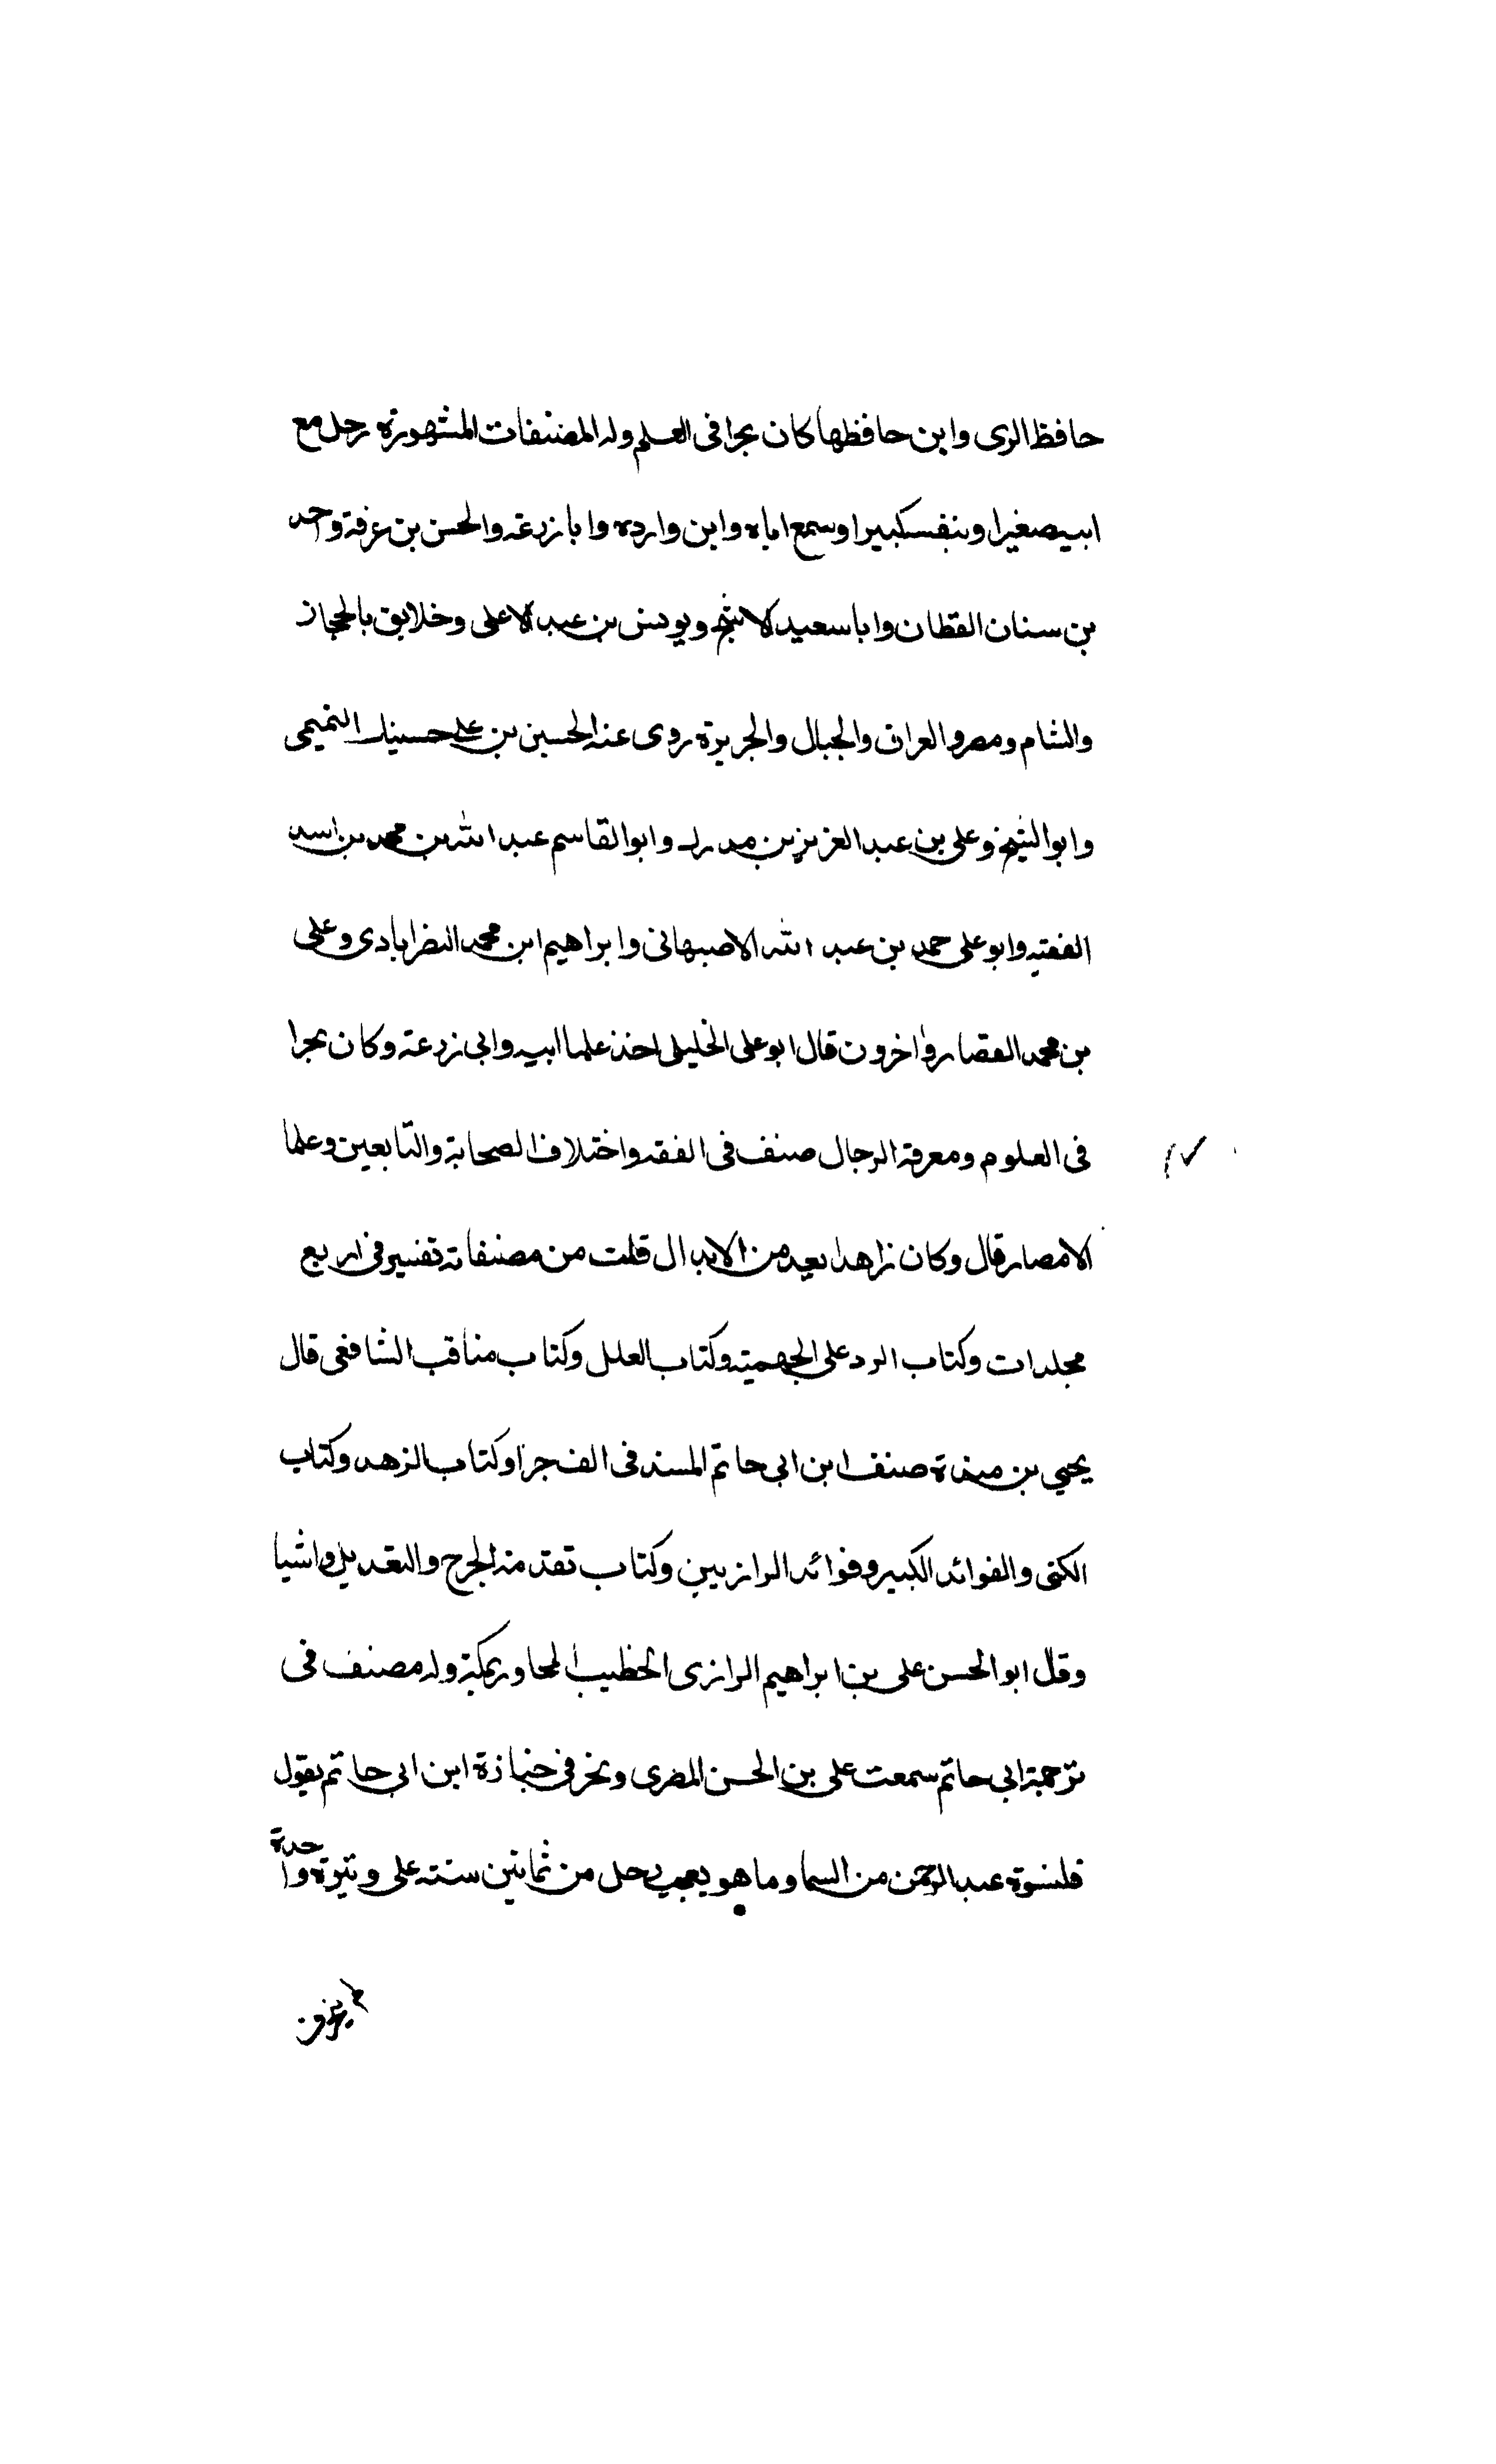 حافظ الرى وابن حافظها كان بحرا فى العلم وله المصنفات المشهورة رحل مع
ابيه صغيرا وبنفسه كبيرا وسمع اباه وابن واره وابا زرعة والحسن بن عرفة واحمد
بن سنان القطان وابا سعيد الاشج ويونس بن عبد الاعلى وخلايق بالحجاز
والشام ومصر والعراق والجبال والجزيرة روى عنه الحسين بن على حسينك التميمى
وابو الشيخ وعلى بن عبد العزيز بن مدرك وابو القاسم عبد الله بن محمد بن اسد
الفقيه وابو على حمد بن عبد الله الاصبهانى وابراهيم ابن محمد النصراباذى وعلى
بن محمد القصار واخرون قال ابو على الخليلى اخذ علم ابيه وابى زرعة وكان بحرا
فى العلوم ومعرفة الرجال صنف فى الفقه واختلاف الصحابة والتابعين وعلما
الامصار قال وكان زاهدا يعد من الابدال قلت من مصنفاته تفسير فى اربع
مجلدات وكتاب الرد على الجهمية وكتاب العلل وكتاب مناقب الشافعى قال
يحيى بن مندة صنف ابن ابى حاتم المسند فى الف جزا وكتاب الزهد وكتاب
الكنى والفوائد الكبير وفوائد الرازيين وكتاب تقدمة الجرح والتعديل واشيا
وقال ابو الحسن على بن ابراهيم الرازى الخطيب المجاور بمكة وله مصنف فى
ترجمة ابى حاتم سمعت على بن الحسن المصرى ونحن فى جنازة ابن ابى حاتم يقول
قلنسوة عبد الرحمن من السما وما هو بعجب رجل من ثمانين سنة على وتيرة واحدة